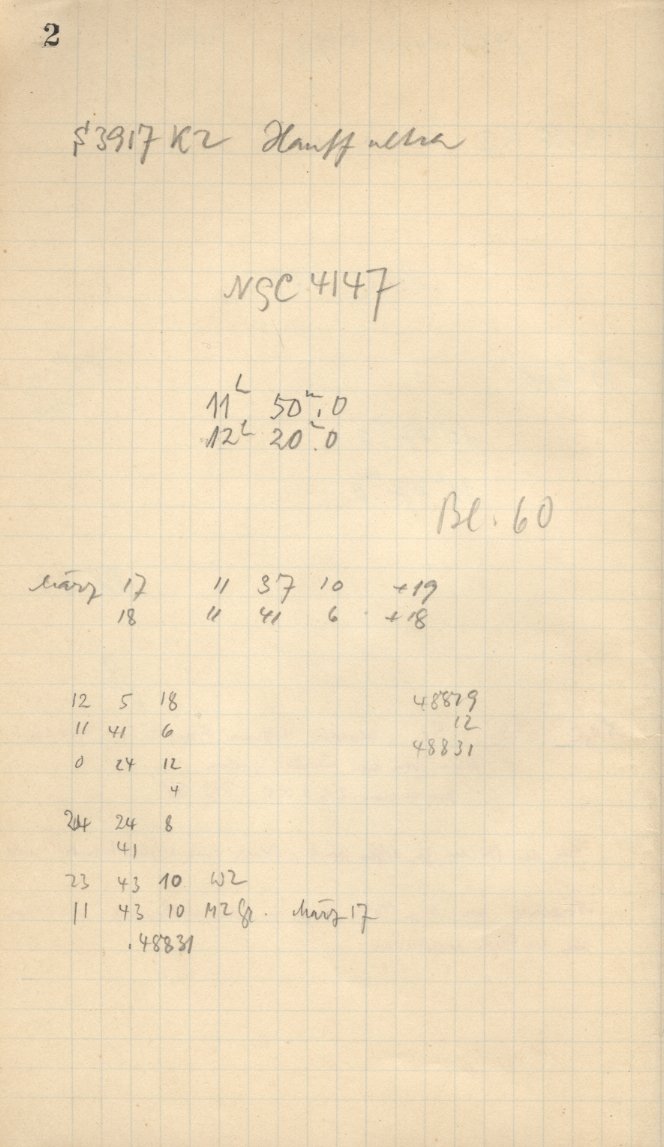 2
S 3917 K2 Hauff ultra
NGC 4147
11ʰ 50ᵐ,0
12ʰ 20ᵐ.0
Bl. 60
März 17 11 37 10 +19
18 11 41 6 +18
12 5 18 48819
11 41 6 12
0 24 12 48831
4
24 24 8
41
23 43 10 WZ
11 43 10 MZ Gr. März 17
.48831